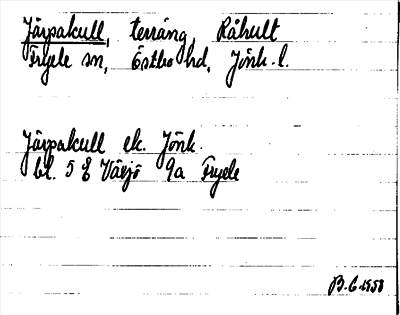 Järpakull, terräng, Råhult
Fryele sn, Östbo hd, Jönk. l.
Järpakull ek. Jönk.
bl. 5 E Växjö 9a Fryele
B.E. 1958